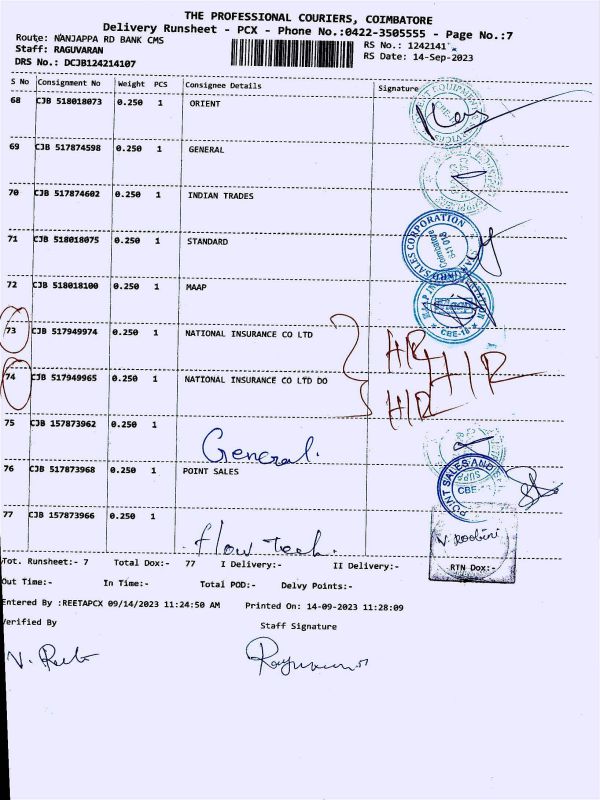 THE PROFESSIONAL COURIERS, COIMBATORE
Delivery Runsheet - PCX - Phone No.:0422-3505555 - Page No.:7
Route: NANJAPPA RD BANK CMS
RS No.: 1242141
Staff: RAGUVARAN
RS Date: 14-Sep-2023
DRS No.: DCJB124214107
S No Consignment No Weight PCS Consignee Details Signature
68 CJB 518018073 0.250 1 ORIENT
69 CJB 517874598 0.250 1 GENERAL
70 CJB 517874602 0.250 1 INDIAN TRADES
71 CJB 518018075 0.250 1 STANDARD
SALES CORPORATION
Coimbatore
72 CJB 518018100 0.250 1 MAAP
CBE-18
73 CJB 517949974 0.250 1 NATIONAL INSURANCE CO LTD
HR HIR
74 CJB 517949965 0.250 1 NATIONAL INSURANCE CO LTD DO
HIR
75 CJB 157873962 0.250 1
General.
76 CJB 517873968 0.250 1 POINT SALES
POINT SALES AND
CBE
77 CJB 157873966 0.250 1
Flow Tech.
Tot. Runsheet:- 7 Total Dox:- 77 I Delivery:- II Delivery:- RTN Dox:-
Out Time:- In Time:- Total POD:- Delvy Points:-
Entered By :REETAPCX 09/14/2023 11:24:50 AM Printed On: 14-09-2023 11:28:09
Verified By Staff Signature